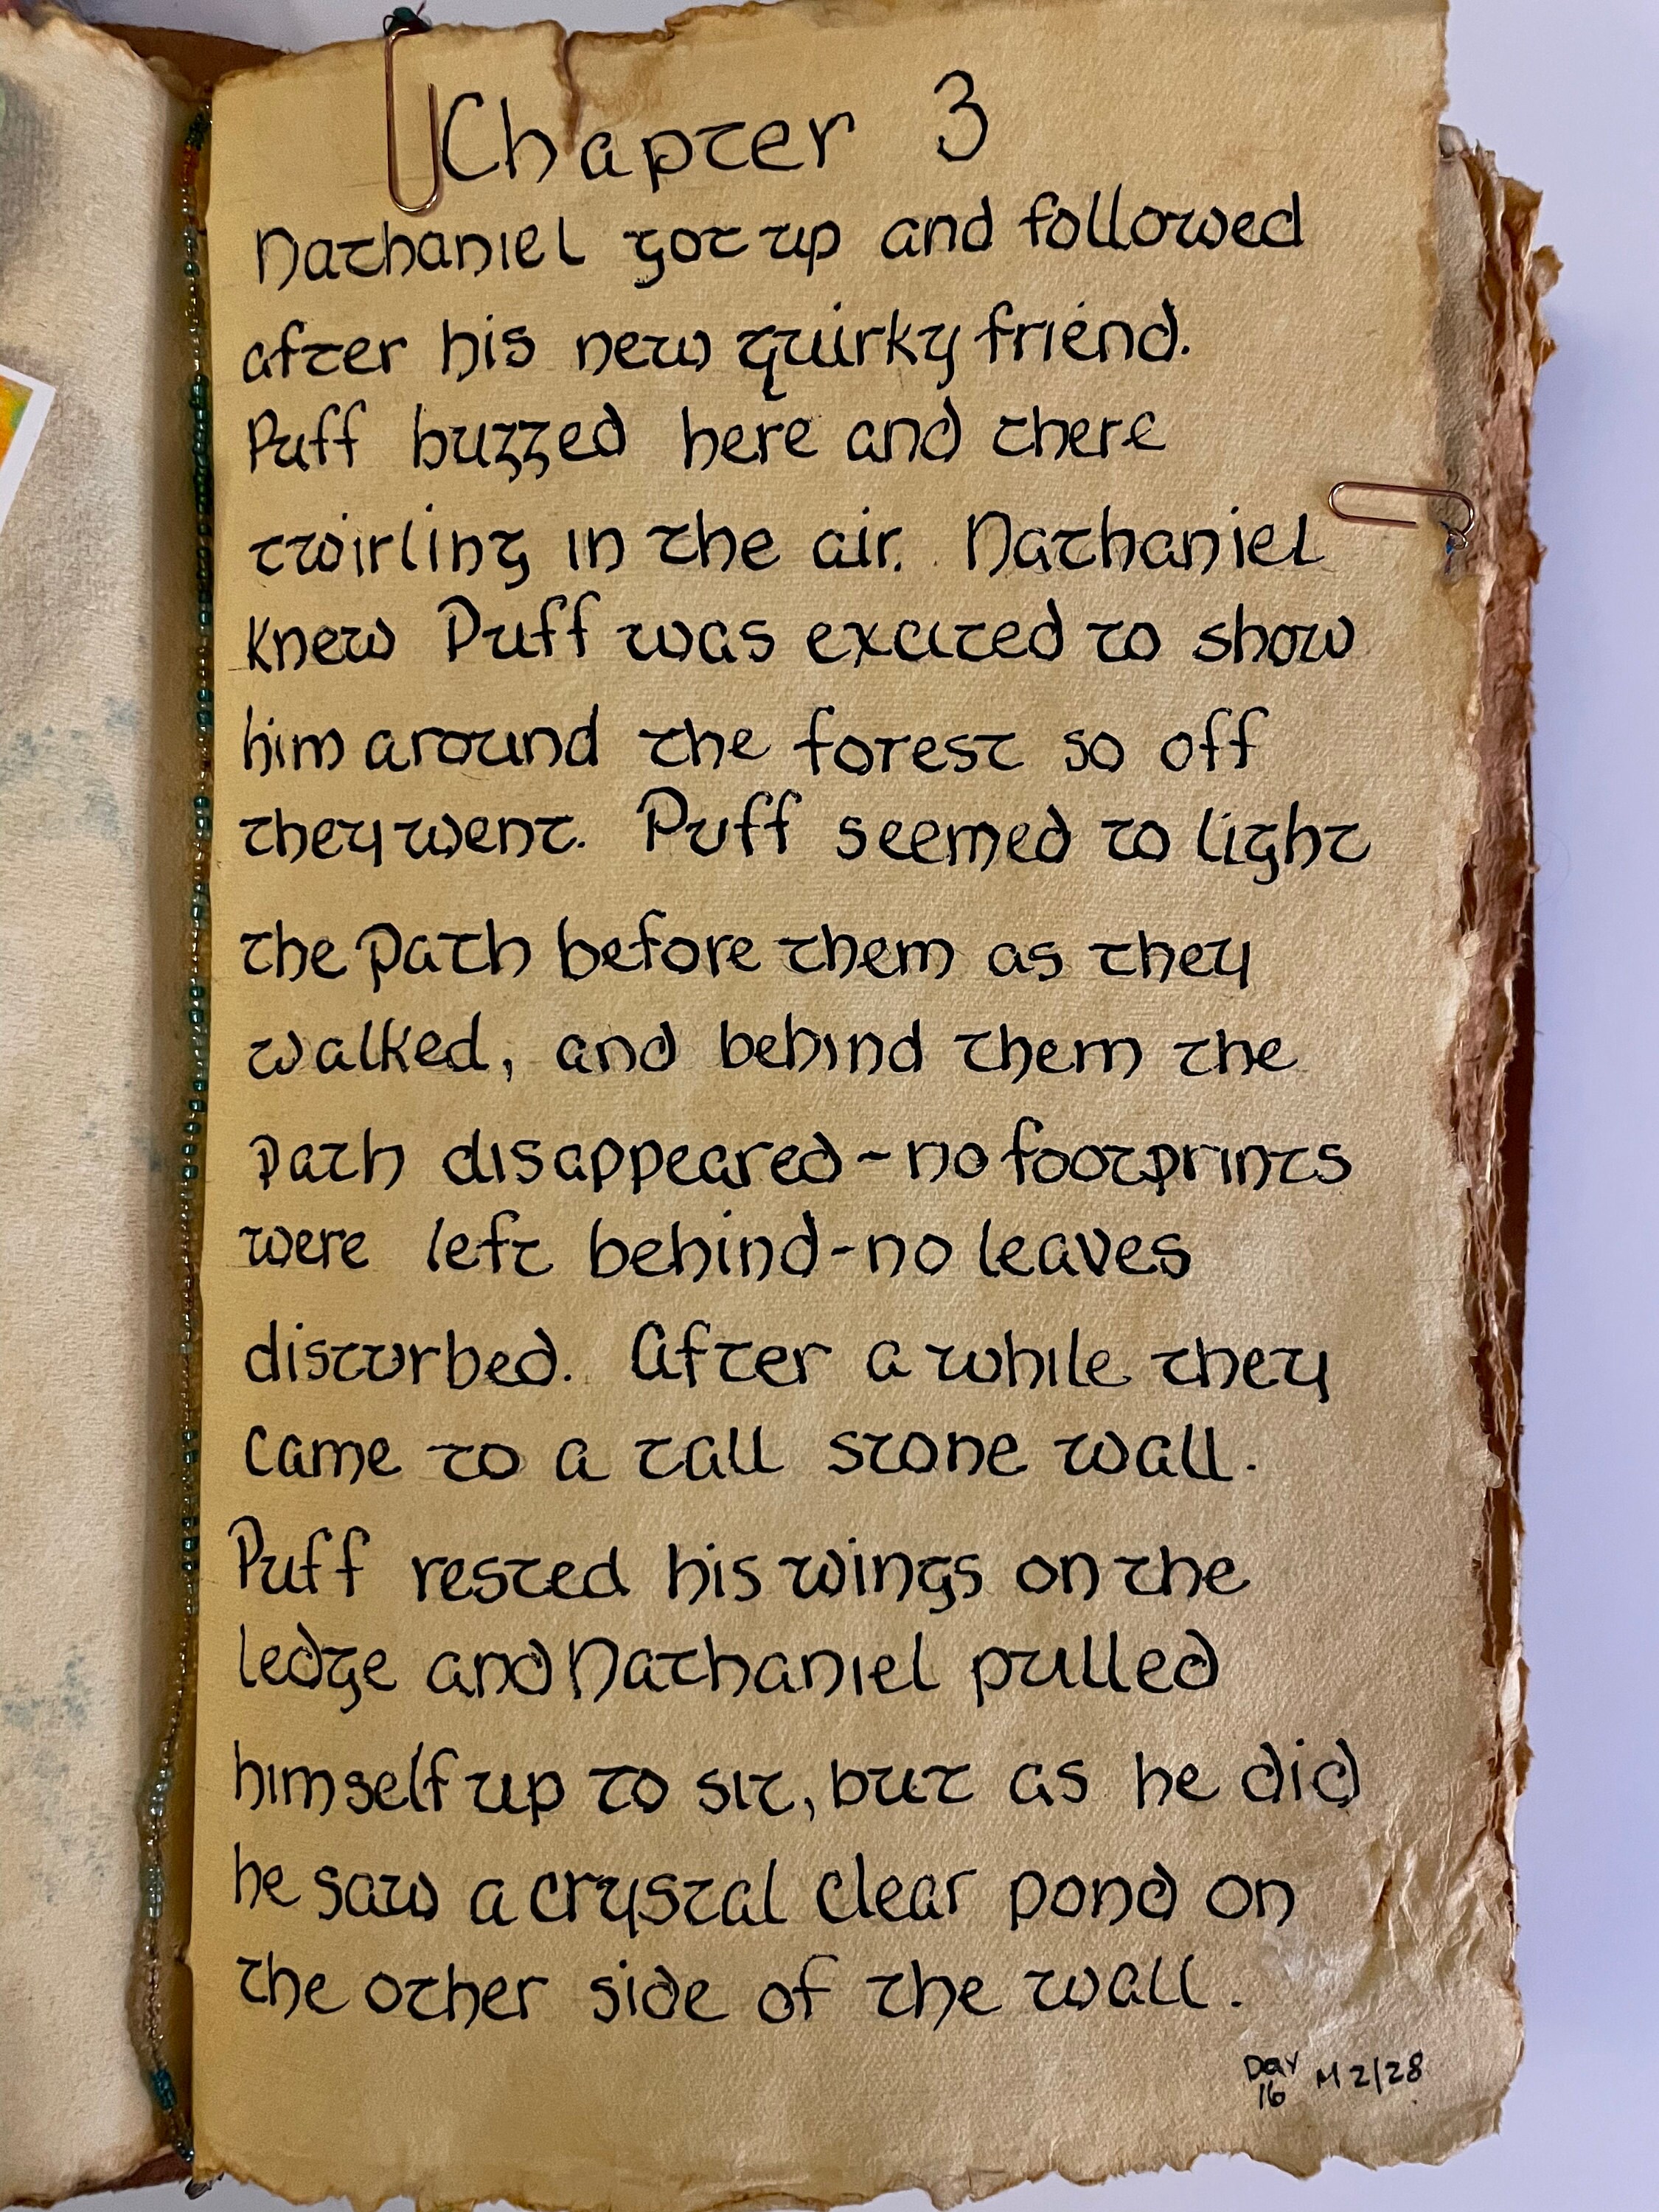 Chapter 3
Nathaniel got up and followed
after his new quirky friend.
Puff buzzed here and there
twirling in the air. Nathaniel
knew Puff was excited to show
him around the forest so off
they went. Puff seemed to light
the path before them as they
walked, and behind them the
path disappeared - no footprints
were left behind - no leaves
disturbed. After a while they
came to a tall stone wall.
Puff rested his wings on the
ledge and Nathaniel pulled
himself up to sit, but as he did
he saw a crystal clear pond on
the other side of the wall.
Day 16 M 2/28